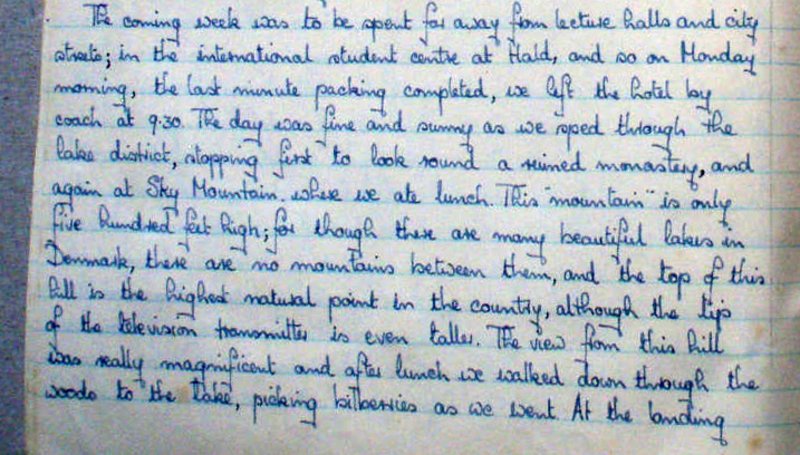 The coming week was to be spent far away from lecture halls and city
streets; in the international student centre at Hald, and so on Monday
morning, the last minute packing completed, we left the hotel by
coach at 9.30. The day was fine and sunny as we sped through the
lake district, stopping first to look round a ruined monastery, and
again at Sky Mountain. where we ate lunch. This "mountain" is only
five hundred feet high; for though there are many beautiful lakes in
Denmark, there are no mountains between them, and the top of this
hill is the highest natural point in the country, although the tip
of the television transmitter is even taller. The view from this hill
was really magnificent and after lunch we walked down through the
woods to the lake, picking bilberries as we went. At the landing